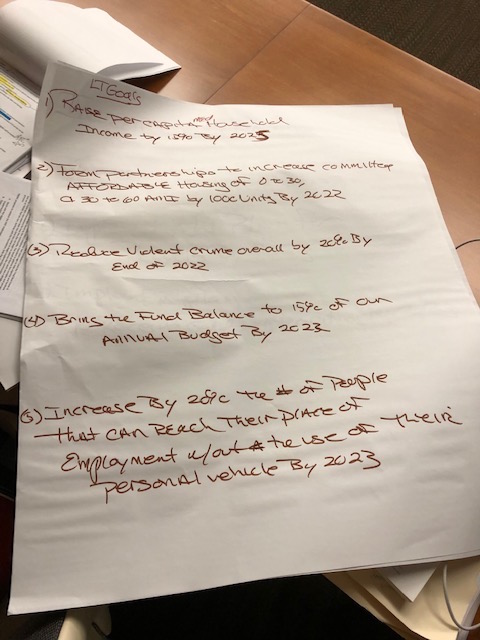 LT Goals
1) Raise per capita Household
Income by 15% By 2025
2) Form partnerships to increase committed
AFFORDABLE Housing of 0 to 30,
a 30 to 60 AMI by 1000 Units By 2022
(3) Reduce Violent crime overall by 20% By
End of 2022
(4) Bring the Fund Balance to 15% of our
ANNUAl Budget By 2023
(5) Increase By 20% the # of People
that CAN REach Their place of
Employment w/out the use of Their
personal vehicle By 2023